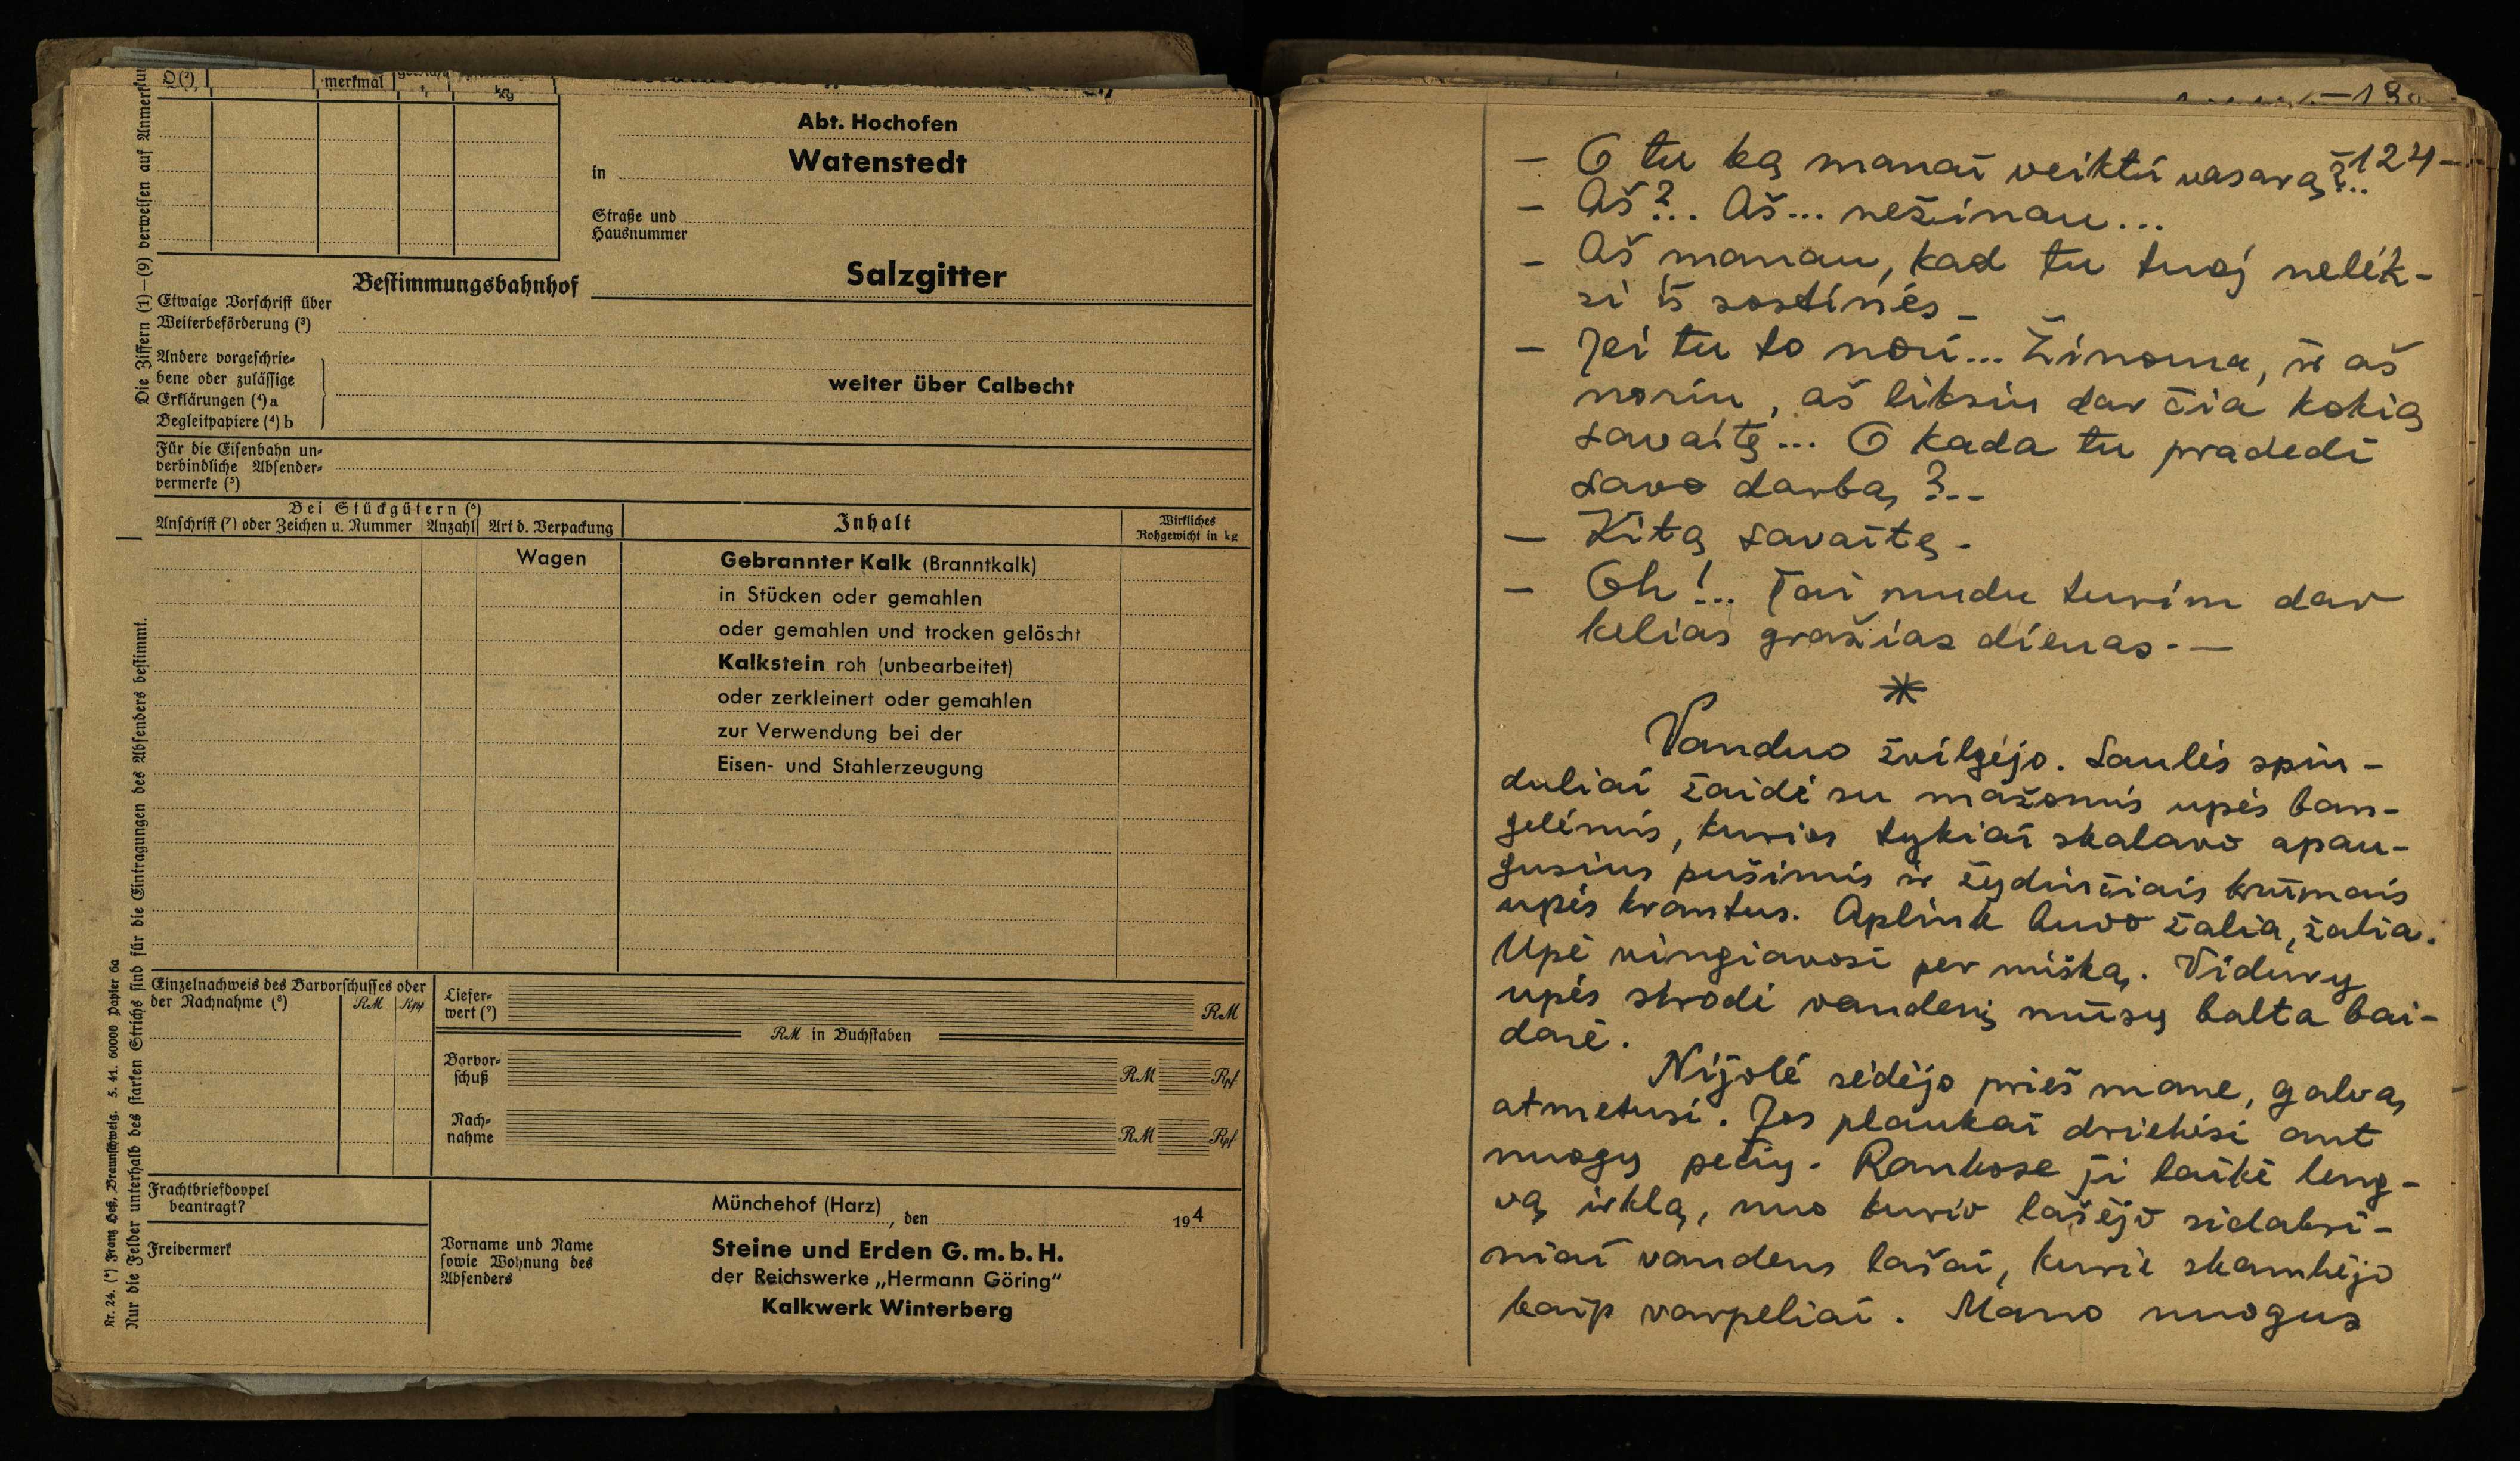 Q (²)
merkmal
kg
Abt. Hochofen
in Watenstedt
Straße und
Hausnummer
Bestimmungsbahnhof Salzgitter
Etwaige Vorschrift über
Weiterbeförderung (³)
Andere vorgeschrie-
bene oder zulässige
Erklärungen (⁴) a
Begleitpapiere (⁴) b
weiter über Calbecht
Für die Eisenbahn un-
verbindliche Absender-
vermerke (⁵)
Bei Stückgütern (⁶)
Anschrift (⁷) oder Zeichen u. Nummer Anzahl Art d. Verpackung
Inhalt
Wirkliches
Rohgewicht in kg
Wagen Gebrannter Kalk (Branntkalk)
in Stücken oder gemahlen
oder gemahlen und trocken gelöscht
Kalkstein roh (unbearbeitet)
oder zerkleinert oder gemahlen
zur Verwendung bei der
Eisen- und Stahlerzeugung
Einzelnachweis des Barvorschusses oder
der Nachnahme (⁸) RM Rpf
Liefer-
wert (⁹) RM
RM in Buchstaben
Barvor-
schuß RM Rpf
Nach-
nahme RM Rpf
Frachtbriefdoppel
beantragt?
Freivermerk
Münchehof (Harz), den 194
Vorname und Name
sowie Wohnung des
Absenders
Steine und Erden G.m.b.H.
der Reichswerke „Hermann Göring"
Kalkwerk Winterberg
Die Ziffern (1)—(9) verweisen auf
Nur die Felder unterhalb des starken Strichs sind für die Eintragungen des Absenders bestimmt.
Nr. 24. (*) Franz Heß, Braunschweig. 5. 41. 60000 Papier 6a
—13
—124—
— O tu ką manai veikti vasarą?..
— Aš?.. Aš... nežinau...
— Aš manau, kad tu tuoj nelėk-
si iš sostinės —
— Jei tu to nori... Žinoma, ir aš
noriu, aš liksiu dar čia kokią
savaitę... O kada tu pradedi
savo darbą?..
— Kitą savaitę.
— Oh!.. Tai mudu turim dar
kelias gražias dienas. —
*
Vanduo žvilgėjo. Saulės spin-
duliai žaidė su mažomis upės ban-
gelėmis, kurios tykiai skalavo apau-
gusius pušimis ir žydinčiais krūmais
upės krantus. Aplink buvo žalia, žalia.
Upė vingiavosi per mišką. Vidury
upės skrodė vandenį mūsų balta bai-
darė.
Nijolė sėdėjo prieš mane, galvą
atmetusi. Jos plaukai driekėsi ant
nuogų pečių. Rankose ji laikė leng-
vą irklą, nuo kurio lašėjo sidabri-
niai vandens lašai, kurie skambėjo
kaip varpeliai. Mano nuogus